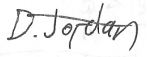 D. Jordan